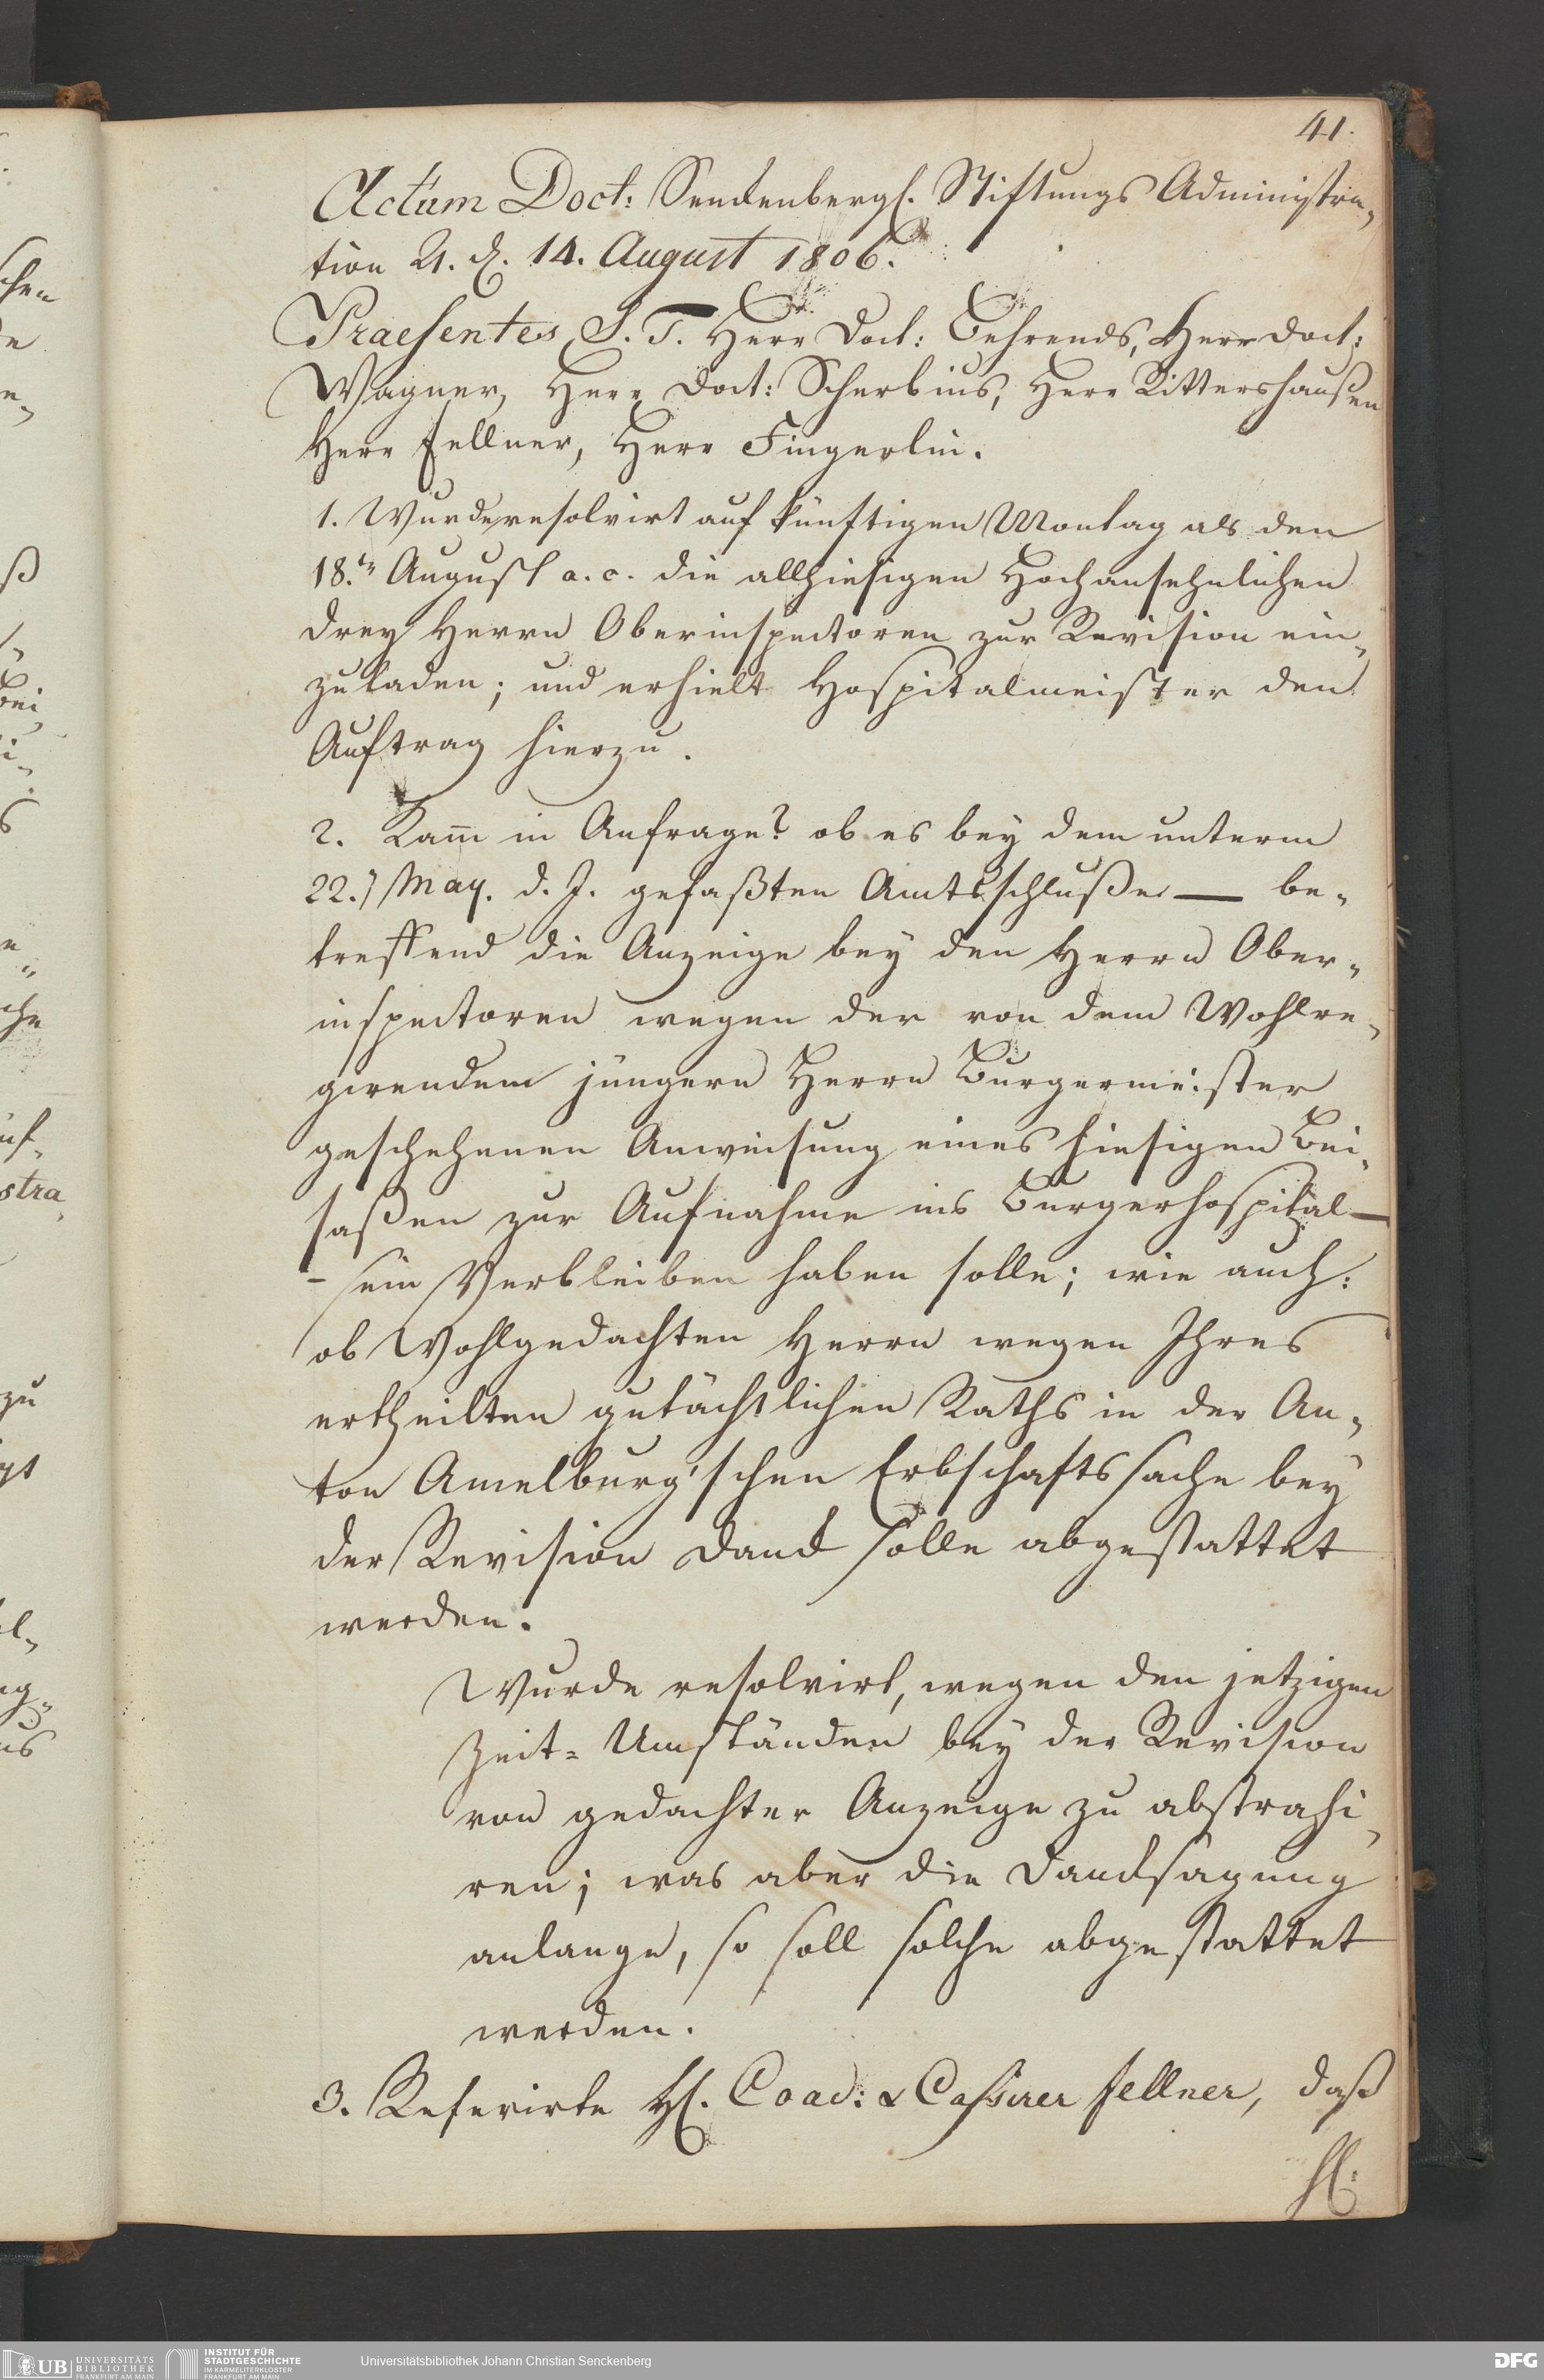 41.
Actum Doct: Senckenbergl. Stiftungs Administra„
tion A. d. 14. August 1806.
Praesentes S. T. Herr Doct: Behrends, Herr Doct:
Wagner, Herr Doct: Scherbius, Herr Rittershaußen
Herr Fellner, Herr Fingerlin.
1. Wurde resolvirt auf künftigen Montag als den
18.ten August a. c. die allhiesigen Hochansehnlichen
drey Herrn Oberinspectoren zur Revision ein„
zuladen; und erhielt Hospitalmeister den
Auftrag hierzu.
2. Kam̅ in Anfrage? ob es bey dem unterm
22.) May. d. J. gefaßten Amtsschluße — be„
treffend die Anzeige bey den Herrn Ober„
inspectoren wegen der von dem Wohlre„
girendem jüngern Herrn Burgermeister
geschehenen Anweisung eines hiesigen Bei„
saßen zur Aufnahme ins Burgerhospital —
– sein Verbleiben haben solle; wie auch:
ob Wohlgedachten Herrn wegen Ihres
ertheilten gutächtlichen Raths in der An„
ton Amelburg'schen Erbschaftssache bey
der Revision Danck solle abgestattet
werden.
Wurde resolvirt, wegen den jetzigen
Zeit= Umständen bey der Revision
von gedachter Anzeige zu abstrahi„
ren; was aber die Dancksagung
anlange, so soll solche abgestattet
werden.
3. Referirte H. Coad: & Cassirer Fellner, daß
H:
chen
de
ß
Bei
i„
s
che
uf„
stra„
zu
gt
el„
ug„
us
UB UNIVERSITÄTS
BIBLIOTHEK
FRANKFURT AM MAIN
INSTITUT FÜR
STADTGESCHICHTE
IM KARMELITERKLOSTER
FRANKFURT AM MAIN
Universitätsbibliothek Johann Christian Senckenberg
DFG